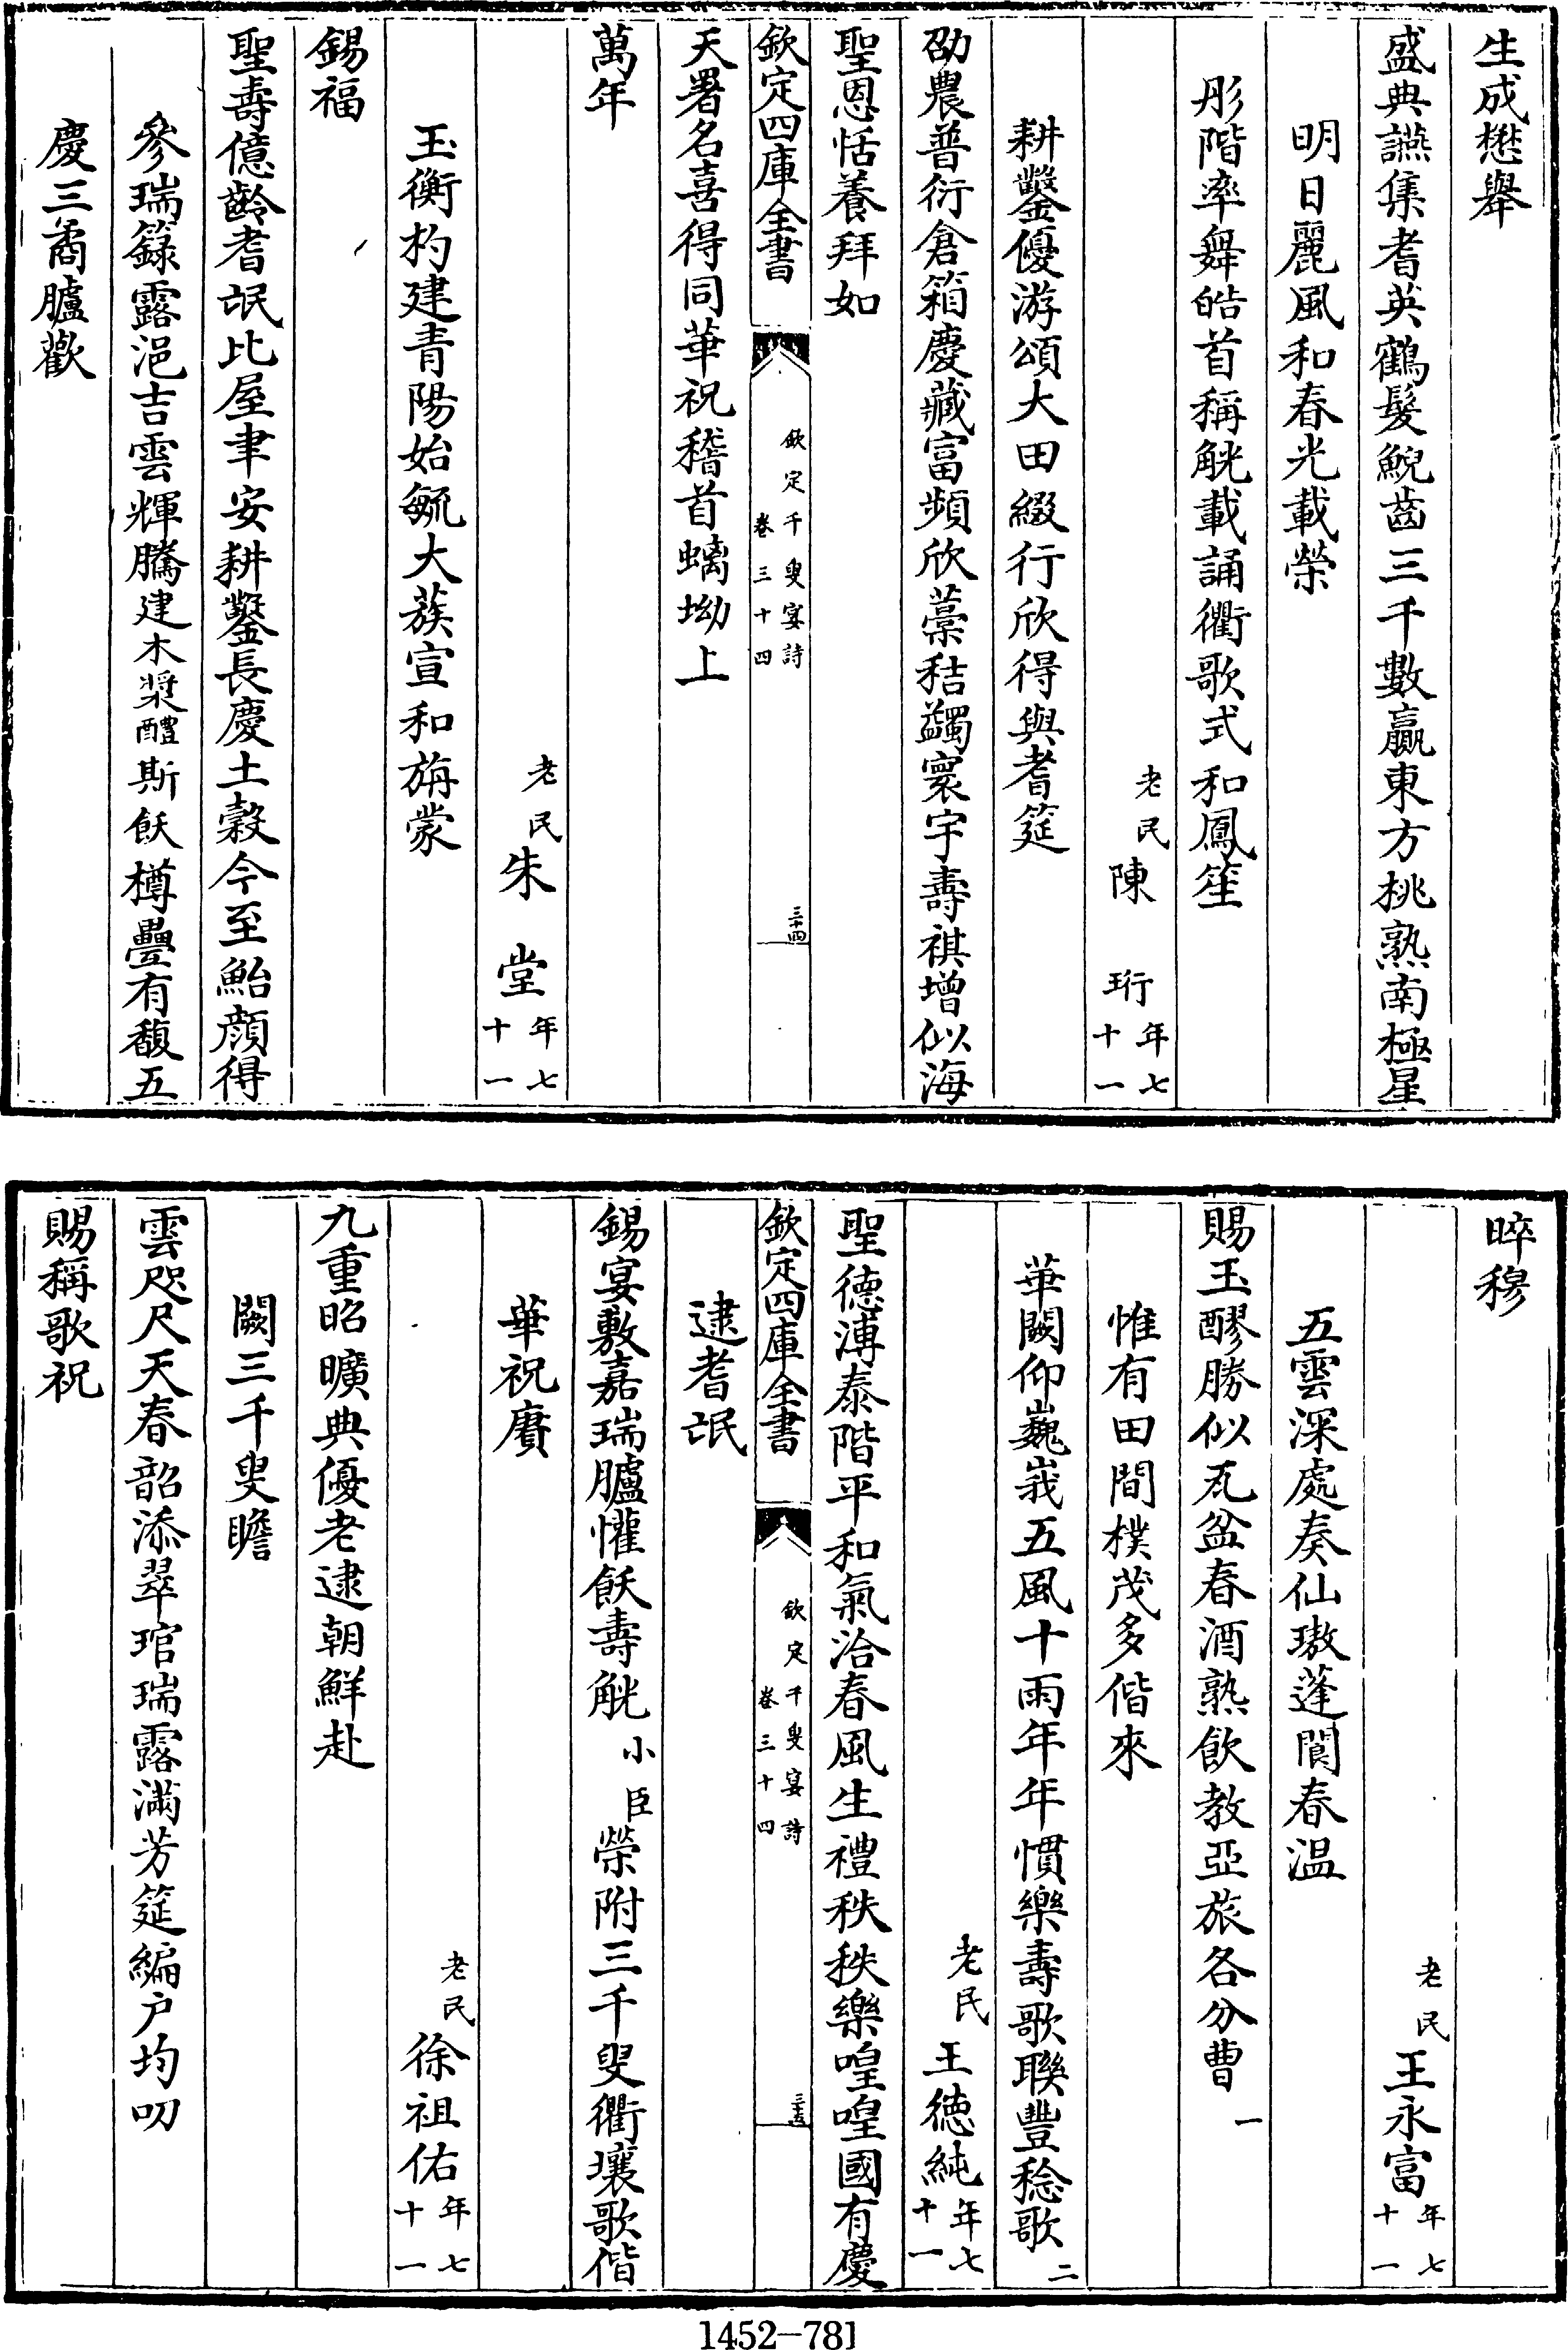 生成懋舉
盛典讌集耆英鶴髮鮸齒三千數贏東方桃熟南極星
明日麗風和春光載榮
彤階率舞皓首稱觥載誦衢歌式和鳳笙
老民陳珩年七十一
耕鑿優游頌大田綴行欣得與耆筵
劭農普衍倉箱慶藏富頻欣藁秸蠲寰宇壽祺增似海
聖恩恬養拜如
欽定四庫全書
欽定千叟宴詩
卷三十四
三十四
天署名喜得同華祝稽首螭坳上
萬年
老民朱堂年七十一
玉衡杓建青陽始毓大蔟宣和旃蒙
錫福
聖壽億齡耆氓比屋聿安耕鑿長慶土穀今至鮐顔得
參瑞籙露浥吉雲輝騰建木漿醴斯飫樽罍有馥五
慶三喬臚歡
晬穆
老民王永富年七十一
五雲深處奏仙璈蓬閬春温
賜玉醪勝似瓦盆春酒熟飲教亞旅各分曹一
惟有田間樸茂多偕來
華闕仰巍峩五風十雨年年慣樂壽歌聯豐稔歌二
老民王德純年七十一
聖德溥泰階平和氣洽春風生禮秩秩樂喤喤國有慶
欽定四庫全書
欽定千叟宴詩
卷三十四
三十五
逮耆氓
錫宴敷嘉瑞臚懽飫壽觥小臣榮附三千叟衢壤歌偕
華祝賡
老民徐祖佑年七十一
九重昭曠典優老逮朝鮮赴
闕三千叟瞻
雲咫尺天春韶添翠琯瑞露滿芳筵編户均叨
賜稱歌祝
1452-781